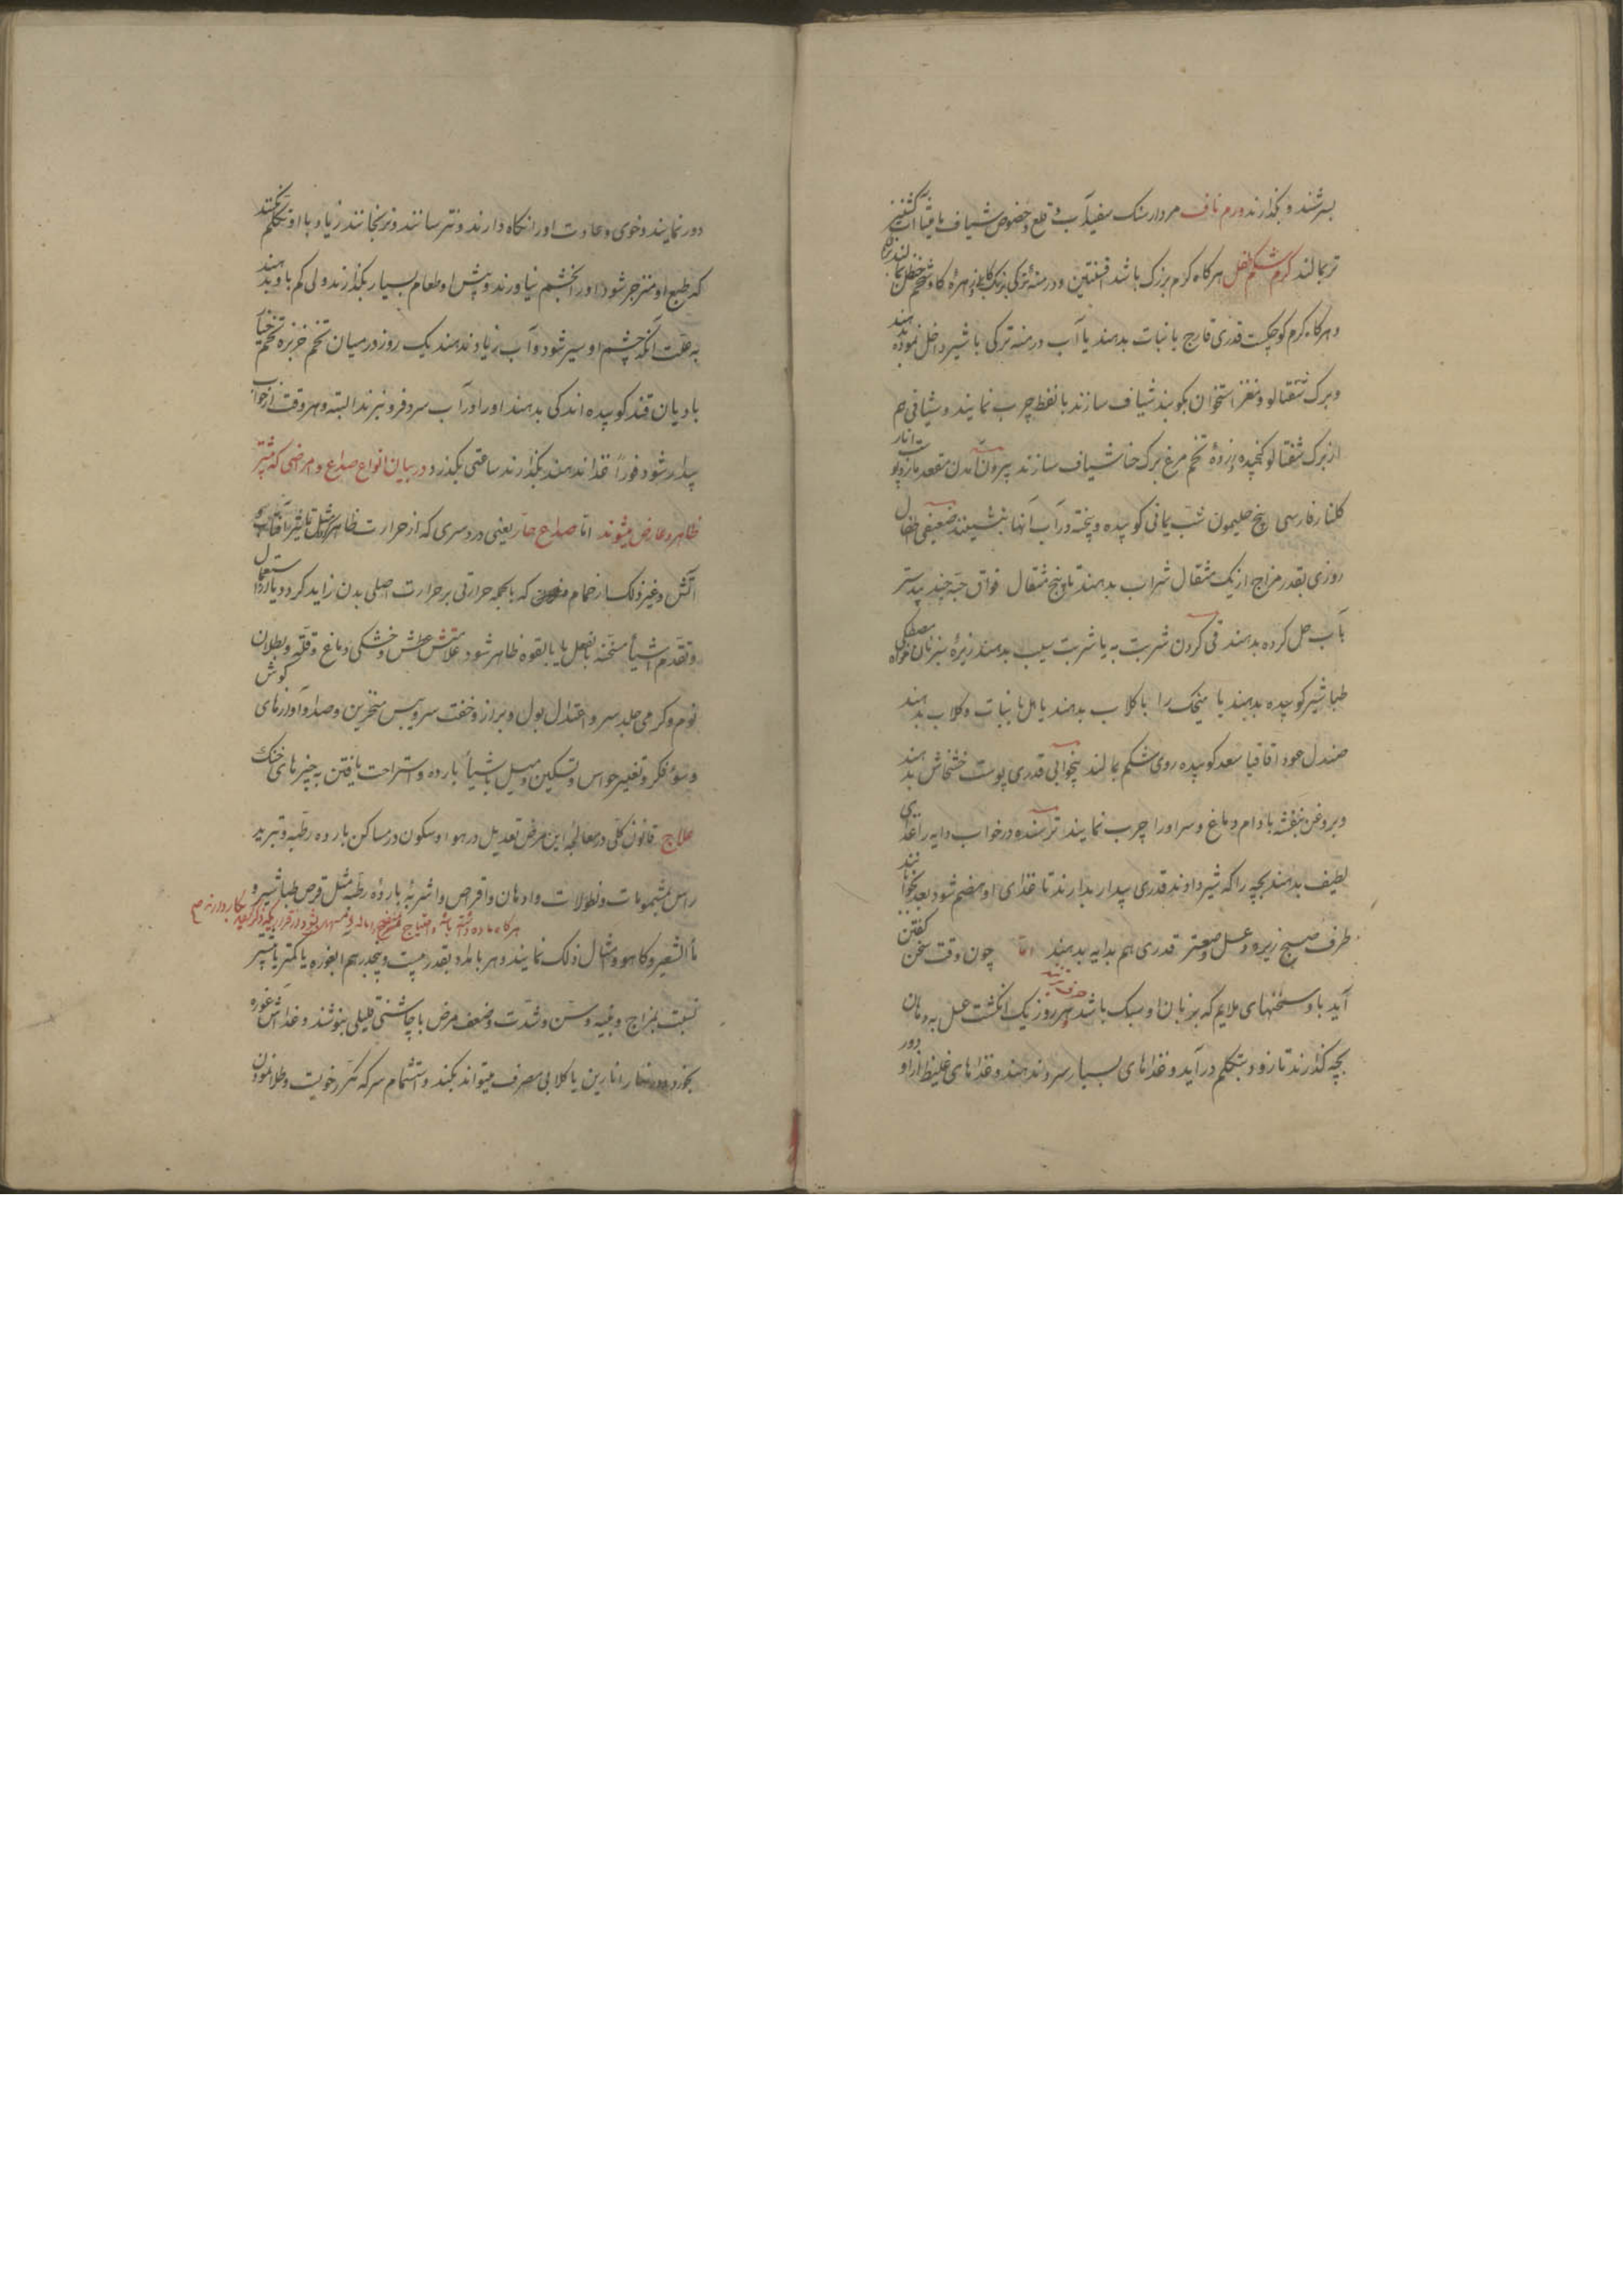 بسرشند و بگذارند ورم ناف مردار سنک سفیدآب قلع و حضوض شیاف مامیثا آب کشنیز
تر بمالند کرم شکم طفل هرکاه کرم بزرک باشد افسنتین و درمنهٔ ترکی برنک کابلی زهرهٔ کاو شحم حنظل بمالند
و هرکاه کرم کوچکست قدری قارچ با نبات بدهند یا آب درمنه ترکی با شیر داخل نموده بدهند
و برک شفتالو و مغز استخوان بکوبند شیاف سازند با نفط چرب نمایند و شیافی هم
از برک شفتالو کنجیده و زردهٔ تخم مرغ برک حنا شیاف سازند بیرون آمدن مقعد مازو پوست انار
کلنار فارسی بیخ حلیمون شب یمانی کوبیده و پخته در آب آنها بنشینند ضعیفی اطفال
روزی بقدر مزاج از یک مثقال شراب بدهند تا پنج مثقال فواق حبه جند بیدستر
بآب حل کرده بدهند قی کردن شربت به یا شربت سیب بدهند زیرهٔ سبز نان خواه مصطکی
طباشیر کوبیده بدهند یا میخک را با کلاب بدهند یا هل با نبات و کلاب بدهند
صندل عود اقاقیا سعد کوبیده روی شکم بمالند بیخوابی قدری پوست خشخاش بدهند
و بروغن بنفشه بادام دماغ و سر او را چرب نمایند ترسنده در خواب دایه را غذای
لطیف بدهند بچه را که شیر دادند قدری بیدار بدارند تا غذای او هضم شود بعد بخوابانند
طرف صبح زیره و عسل و صعتر قدری هم بدایه بدهند اما چون وقت سخن کفتن
آید با و سخنهای ملایم که بزبان او سبک باشد حرف زنند هر روز یک انکشت عسل به دهان
بچه کذارند تا زود بتکلم درآید و غذاهای بسیار سرد ندهند و غذاهای غلیظ از او دور
دور نمایند و خوی و عادت او را نکاه دارند و نترسانند و نرنجانند زیاد با او تکلم نکنند
که طبع او منزجر شود او را بخشم نیاورند و پیش او طعام بسیار بگذارند ولی کم باو بدهند
به علت آنکه چشم او سیر شود و آب زیاد ندهند یک روز در میان تخم خربزه تخم خیار
بادیان قند کوبیده اندکی بدهند او را و آب سرد فرو نبرند البته و هر وقت از خواب
بیدار شود فوراً غذا ندهند بگذارند ساعتی بگذرد در بیان انواع صداع و امراضی که بیشتر
ظاهر و عارض میشوند اما صداع حار یعنی درد سری که از حرارت ظاهر شود مثل تاثیر آفتاب و
آتش و غیر ذلک از حمام که بالجمله حرارتی بر حرارت اصلی بدن زاید کردد یا از دوا استعمال
و تقدم اشیأ مسخنه بالفعل یا بالقوه ظاهر شود علامتش عطش و خشکی دماغ و قلة و بطلان
نوم و کرمی جلد سر و اعتدال بول و براز و خفت سر و یبس منخرین و صدا و آوازهای کوش
و سوء فکر و تغییر حواس و تسکین و میل باشیأ بارده و استراحت یافتن به چیزهای خنک
علاج قانون کلی در معالجهٔ این مرض تعدیل در هوا و سکون در مساکن بارده رطبه و تبرید
راس بمشمومات و نطولات و ادهان و اقراص و اشربهٔ باردهٔ رطبه مثل قرص طباشیر و
هرکاه ماده داشته باشد و احتیاج
مأ الشعیر و کاهو و امثال ذلک نمایند و هر بامداد بقدر بیست و پنجدرهم ابغوره یا کمتر یا بیشتر
نسبت بمزاج و بنیه و سن و شدت و ضعف مرض با چاشنی قلیلی بنوشند و غذا آش غوره
بخورد انارین یا کلابی مصرف میتواند بکند و استشمام سرکه مکرر خوبست و طلا نمودن